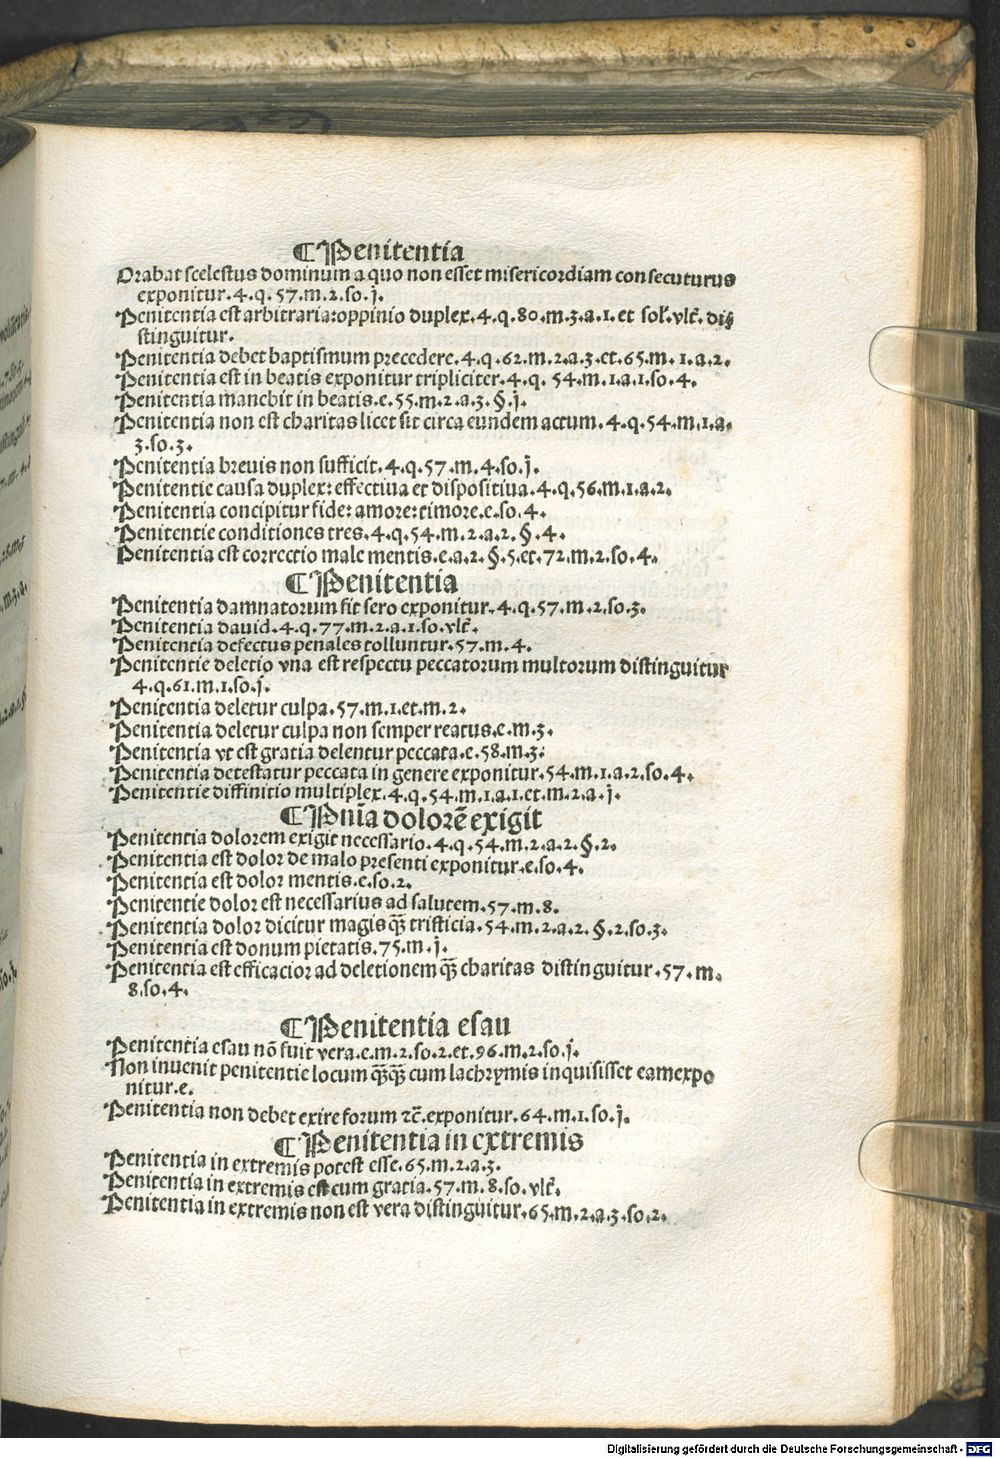 ¶Penitentia
Orabat scelestus dominum a quo non esset misericordiam consecuturus
exponitur.4.q.57.m.2.so.j.
Penitentia est arbitraria:oppinio duplex.4.q.80.m.3.a.1.et sol̃.vlt̃.dis
stinguitur.
Penitentia debet baptismum precedere.4.q.62.m.2.a.3.et.65.m.1.a.2.
Penitentia est in beatis exponitur tripliciter.4.q.54.m.1.a.1.so.4.
Penitentia manebit in beatis.e.55.m.2.a.3.§.j.
Penitentia non est charitas licet sit circa eundem actum.4.q.54.m.1.a.
3.so.3.
Penitentia breuis non sufficit.4.q.57.m.4.so.j.
Penitentie causa duplex:effectiua et dispositiua.4.q.56.m.1.a.2.
Penitentia concipitur fide:amore:timore.e.so.4.
Penitentie conditiones tres.4.q.54.m.2.a.2.§.4.
Penitentia est correctio male mentis.e.a.2.§.5.et.72.m.2.so.4.
¶Penitentia
Penitentia damnatorum fit sero exponitur.4.q.57.m.2.so.3.
Penitentia dauid.4.q.77.m.2.a.1.so.vlt̃.
Penitentia defectus penales tolluntur.57.m.4.
Penitentie deletio vna est respectu peccatorum multorum distinguitur
4.q.61.m.1.so.j.
Penitentia deletur culpa.57.m.1.et.m.2.
Penitentia deletur culpa non semper reatus.e.m.3.
Penitentia vt est gratia delentur peccata.e.58.m.3.
Penitentia detestatur peccata in genere exponitur.54.m.1.a.2.so.4.
Penitentie diffinitio multiplex.4.q.54.m.1.a.1.et.m.2.a.j.
¶Pnĩa dolorẽ exigit
Penitentia dolorem exigit necessario.4.q.54.m.2.a.2.§.2.
Penitentia est dolor de malo presenti exponitur.e.so.4.
Penitentia est dolor mentis.e.so.2.
Penitentie dolor est necessarius ad salutem.57.m.8.
Penitentia dolor dicitur magis qȝ̃ tristicia.54.m.2.a.2.§.2.so.3.
Penitentia est donum pietatis.75.m.j.
Penitentia est efficacior ad deletionem qȝ̃ charitas distinguitur.57.m.
8.so.4.
¶Penitentia esau
Penitentia esau nõ fuit vera.e.m.2.so.2.et.96.m.2.so.j.
Non inuenit penitentie locum qȝ̃qȝ̃ cum lachrymis inquisisset eam expo
nitur.e.
Penitentia non debet exire forum ⁊c̃.exponitur.64.m.1.so.j.
¶Penitentia in extremis
Penitentia in extremis potest esse.65.m.2.a.3.
Penitentia in extremis est cum gratia.57.m.8.so.vlt̃.
Penitentia in extremis non est vera distinguitur.65.m.2.a.3.so.2.
Digitalisierung gefördert durch die Deutsche Forschungsgemeinschaft - DFG